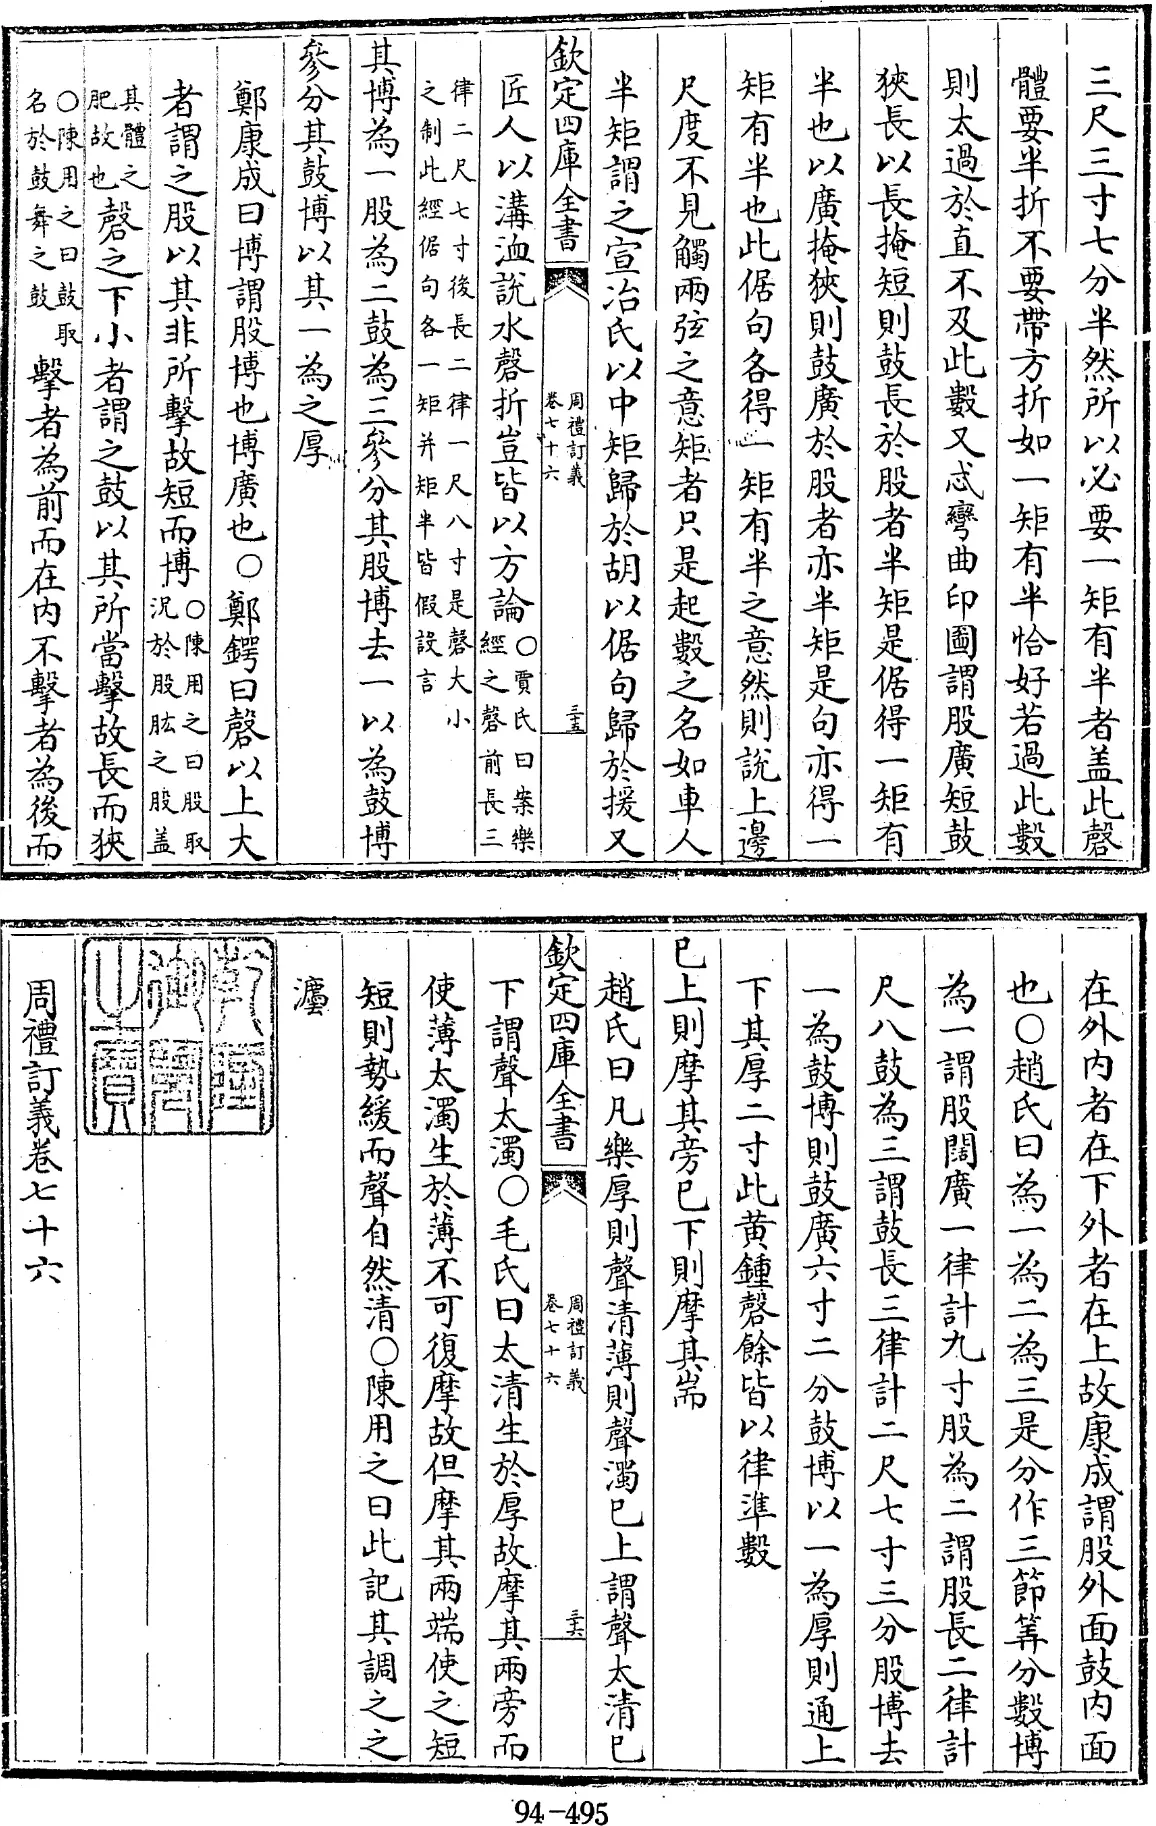 三尺三寸七分半然所以必要一矩有半者盖此磬
體要半折不要帶方折如一矩有半恰好若過此數
則太過於直不及此數又忒彎曲印圖謂股廣短鼓
狹長以長掩短則鼓長於股者半矩是倨得一矩有
半也以廣掩狹則鼓廣於股者亦半矩是句亦得一
矩有半也此倨句各得一矩有半之意然則說上邊
尺度不見觸兩弦之意矩者只是起數之名如車人
半矩謂之宣冶氏以中矩歸於胡以倨句歸於援又
欽定四庫全書
周禮訂義
卷七十六
三五
匠人以溝洫說水磬折豈皆以方論○賈氏曰案樂
經之磬前長三
律二尺七寸後長二律一尺八寸是磬大小
之制此經倨句各一矩并矩半皆假設言
其博為一股為二鼓為三參分其股博去一以為鼓博
參分其鼓博以其一為之厚
鄭康成曰博謂股博也博廣也○鄭鍔曰磬以上大
者謂之股以其非所擊故短而博○陳用之曰股取
況於股肱之股盖
其體之
肥故也磬之下小者謂之鼓以其所當擊故長而狹
○陳用之曰鼓取
名於鼓舞之鼓擊者為前而在内不擊者為後而
在外内者在下外者在上故康成謂股外面鼓内面
也○趙氏曰為一為二為三是分作三節筭分數博
為一謂股闊廣一律計九寸股為二謂股長二律計
尺八鼓為三謂鼓長三律計二尺七寸三分股博去
一為鼓博則鼓廣六寸二分鼓博以一為厚則通上
下其厚二寸此黄鍾磬餘皆以律準數
已上則摩其旁已下則摩其耑
趙氏曰凡樂厚則聲清薄則聲濁已上謂聲太清已
欽定四庫全書
周禮訂義
卷七十六
三六
下謂聲太濁○毛氏曰太清生於厚故摩其兩旁而
使薄太濁生於薄不可復摩故但摩其兩端使之短
短則勢緩而聲自然清○陳用之曰此記其調之之
灋
乾隆
御覽
之寶
周禮訂義卷七十六
94-495